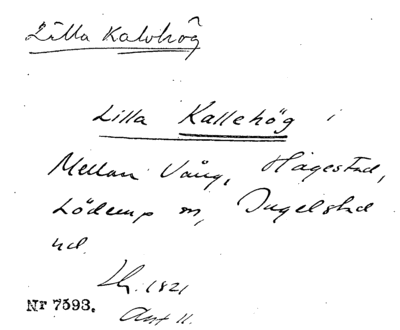 Lilla Kalvhög
Lilla Kallehög i
Mellan Vång, Hagestad,
Löderup sn, Ingelstad
hd.
Lh. 1821
Akt 11.
Nr 7593.